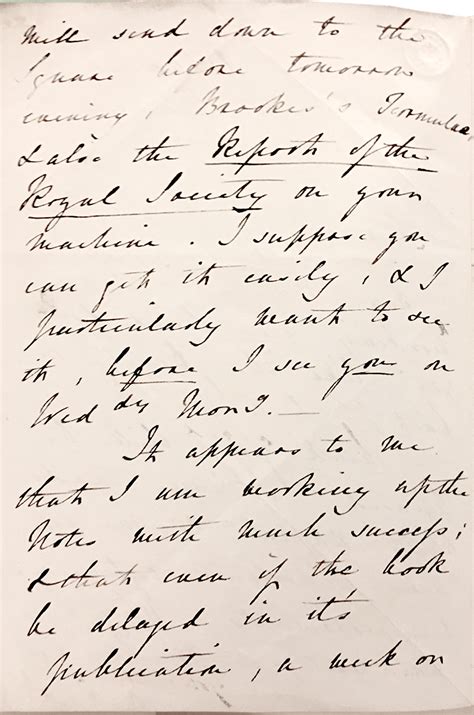 will send down to the
Square before tomorrow
evening, Brooke's Formulae,
& also the Report of the
Royal Society on your
machine. I suppose you
can get it easily, & I
particularly want to see
it, before I see you on
Wed dy Morng. —
It appears to me
that I am working up the
Notes with much success;
& that even if the book
be delayed in it's
publication, a week or